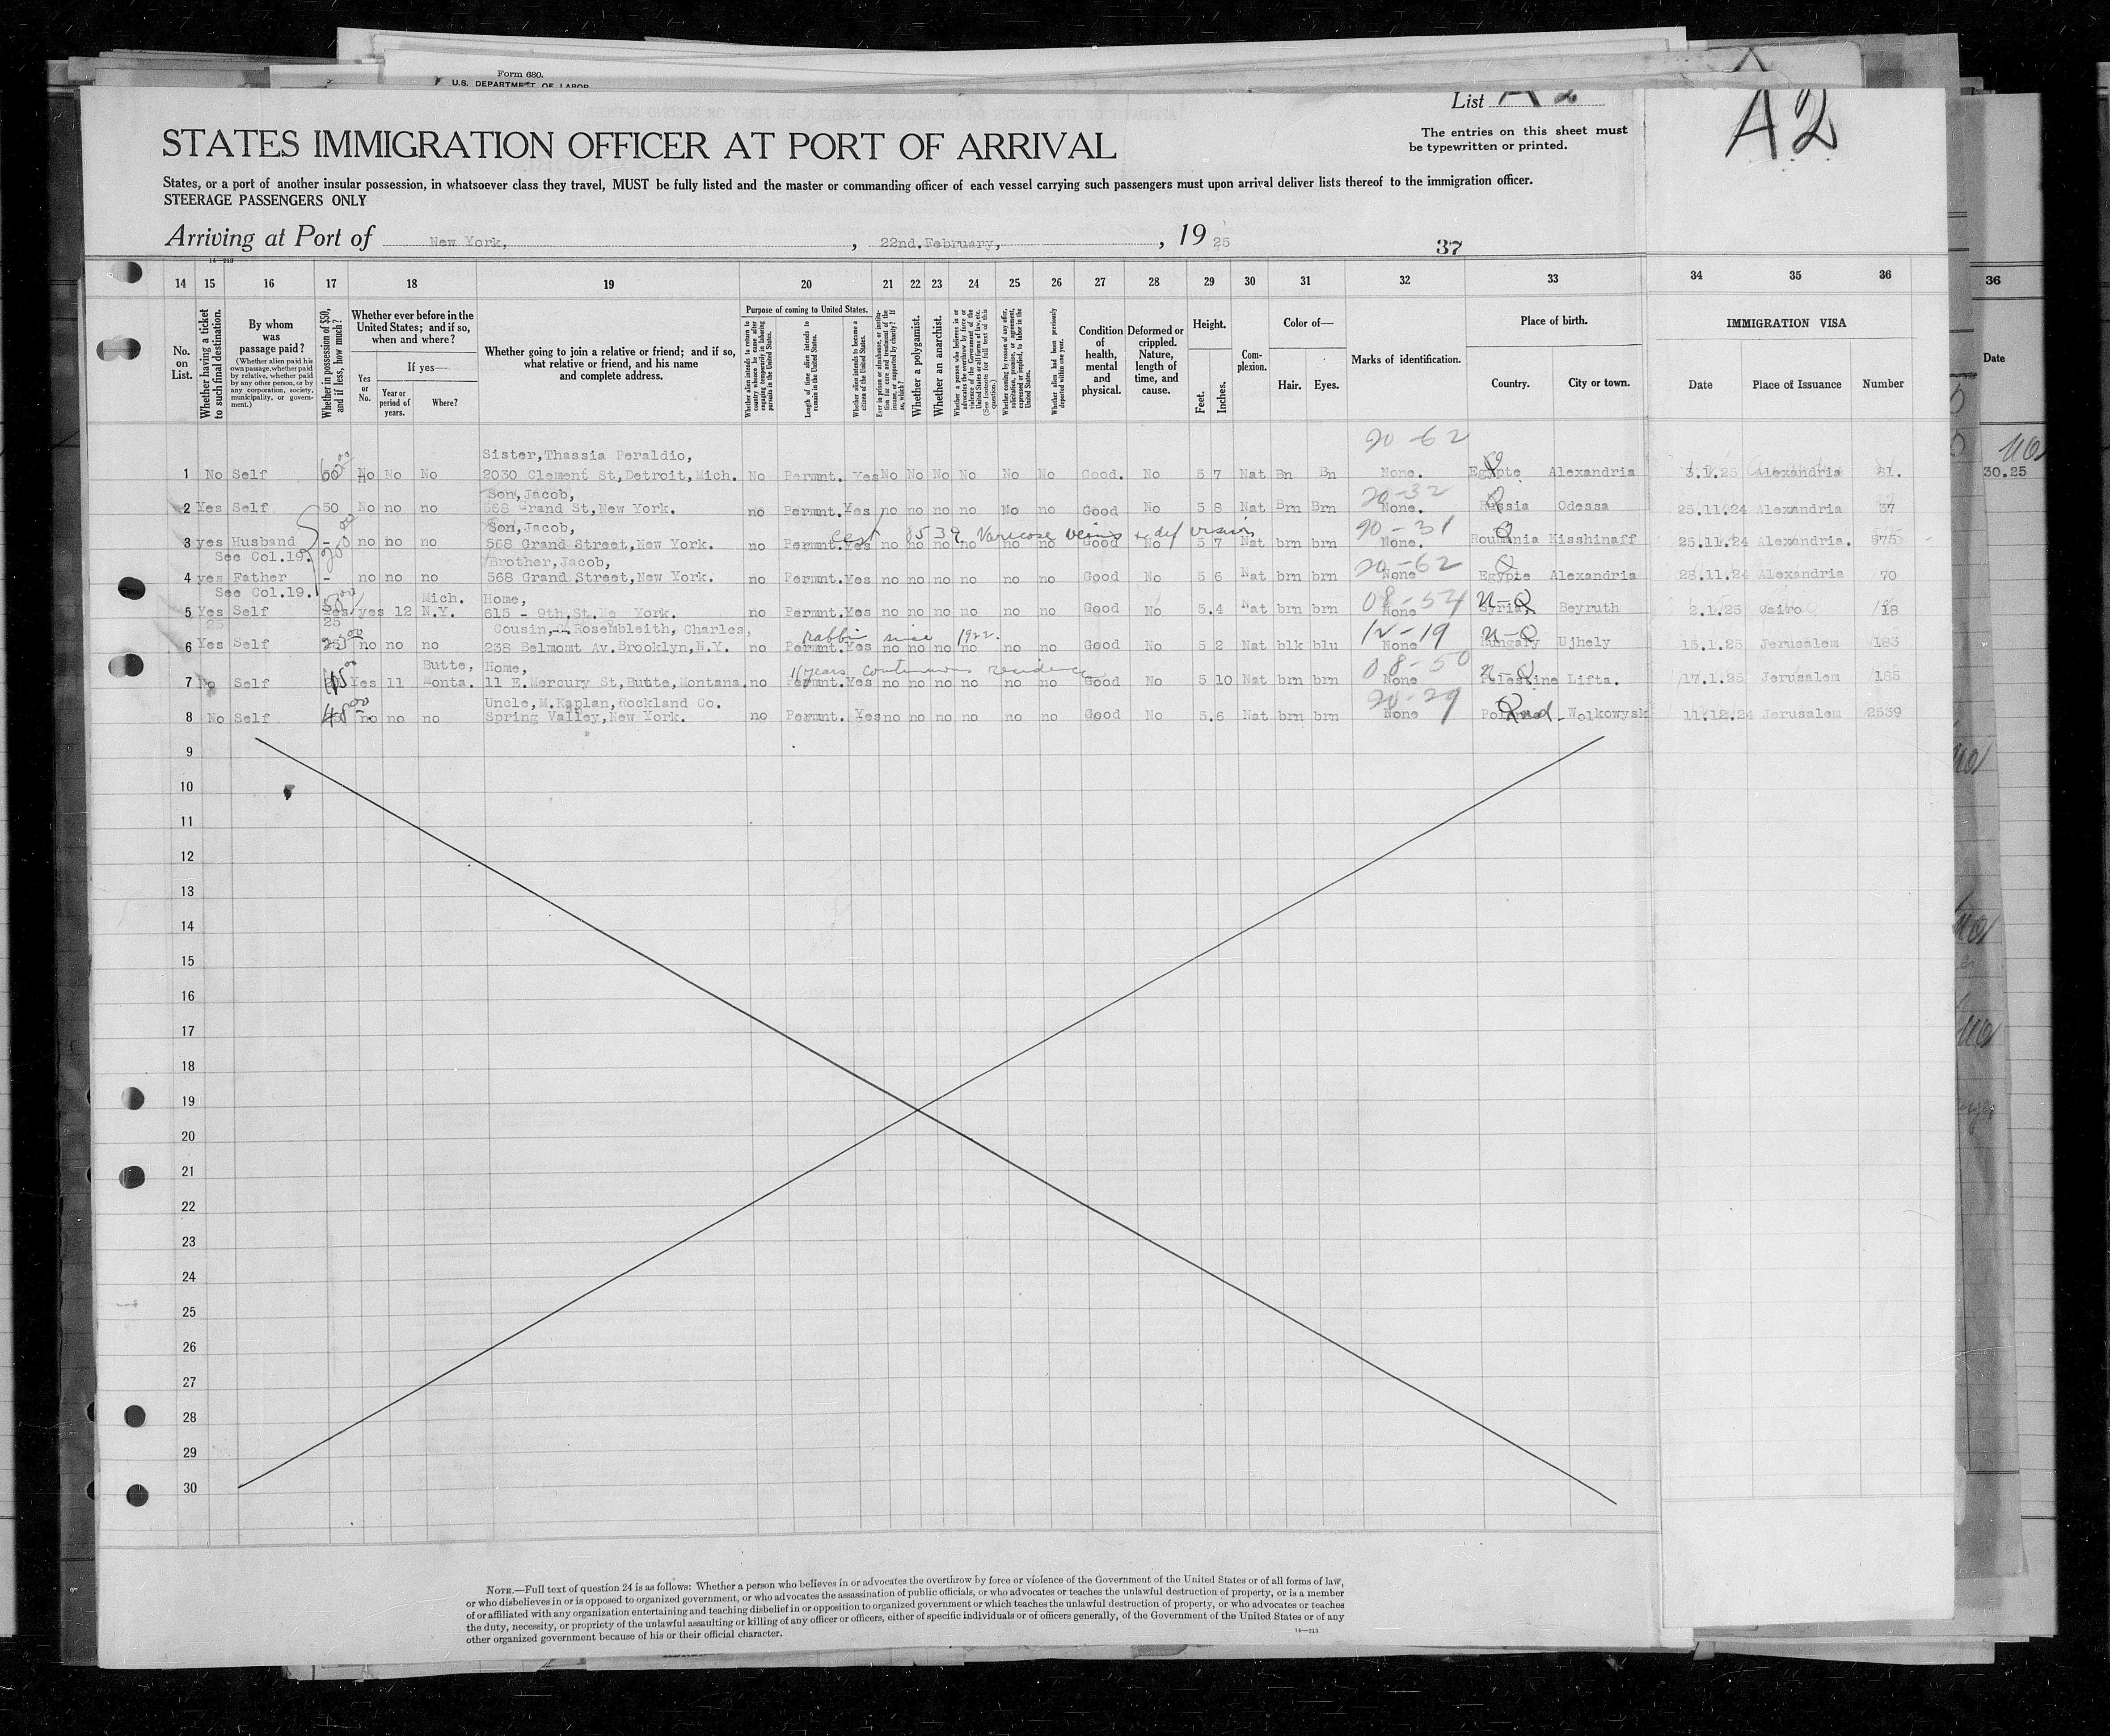 Form 680.
U.S. DEPARTMENT OF LABOR
List A 2
A2
The entries on this sheet must
be typewritten or printed.
STATES IMMIGRATION OFFICER AT PORT OF ARRIVAL
States, or a port of another insular possession, in whatsoever class they travel, MUST be fully listed and the master or commanding officer of each vessel carrying such passengers must upon arrival deliver lists thereof to the immigration officer.
STEERAGE PASSENGERS ONLY
Arriving at Port of New York, , 22nd.February, , 19 25
37
14—213
14 15 16 17 18 19 20 21 22 23 24 25 26 27 28 29 30 31 32 33 34 35 36
36
No. on List.
Whether having a ticket to such final destination.
By whom was passage paid?
(Whether alien paid his own passage, whether paid by relative, whether paid by any other person, or by any corporation, society, municipality, or government.)
Whether in possession of $50, and if less, how much?
Whether ever before in the United States; and if so, when and where?
Yes or No.
If yes—
Year or period of years.
Where?
Whether going to join a relative or friend; and if so, what relative or friend, and his name and complete address.
Purpose of coming to United States.
Whether alien intends to return to country whence he came after engaging temporarily in laboring pursuits in the United States.
Length of time alien intends to remain in the United States.
Whether alien intends to become a citizen of the United States.
Ever in prison or almshouse, or institution for care and treatment of the insane, or supported by charity? If so, which?
Whether a polygamist.
Whether an anarchist.
Whether a person who believes in or advocates the overthrow by force or violence of the Government of the United States or all forms of law, etc. (See footnote for full text of this question.)
Whether coming by reason of any offer, solicitation, promise, or agreement, expressed or implied, to labor in the United States.
Whether alien had been previously deported within one year.
Condition of health, mental and physical.
Deformed or crippled. Nature, length of time, and cause.
Height.
Feet. Inches.
Complexion.
Color of—
Hair. Eyes.
Marks of identification.
Place of birth.
Country. City or town.
IMMIGRATION VISA
Date Place of Issuance Number
Date
20-62
Sister, Thassia Peraldio,
1 No Self No No No 2030 Clement St, Detroit, Mich. No Permnt. Yes No No No No No No Good. No 5 7 Nat Bn Bn None. Egypte Alexandria 3.1.25 Alexandria 81.
30.25
Son, Jacob, 20-32
2 Yes Self 50 No no no 568 Grand St, New York. no Permnt. Yes no no no no No no Good No 5 8 Nat Brn Brn None. Russia Odessa 25.11.24 Alexandria 37
Son, Jacob, 8539 Varicose veins & def vision 20-31
3 yes Husband - no no no 568 Grand Street, New York. no Permnt. Yes no no no no no no Good No 5 7 Nat brn brn None. Roumania Kisshinaff 25.11.24 Alexandria. 575
See Col.19. Brother, Jacob, 20-62
4 yes Father - no no no 568 Grand Street, New York. no Permnt. Yes no no no no no no Good No 5 6 Nat brn brn None Egypte Alexandria 28.11.24 Alexandria 70
See Col.19. Mich. Home, 08-54 N-Q
5 Yes Self Yes yes 12 N.Y. 615 - 9th.St. York. no Permnt. Yes no no no no no no Good No 5.4 Nat brn brn None Syrian Beyruth 2.1.25 Cairo 18
25 25 Cousin, Rosembleith, Charles, rabbi since 1922. 12-19 N-Q
6 Yes Self no no no 238 Belmont Av. Brooklyn, N.Y. no Permnt. Yes no no no no no no Good No 5 2 Nat blk blu None Hungary Ujhely 15.1.25 Jerusalem 183
Butte, Home, 11 years continuous residence 08-50 N-Q
7 No Self Yes 11 Monta. 11 E. Mercury St, Butte, Montana. no Permnt. Yes no no no no no no Good No 5 10 Nat brn brn None Palestine Lifta. 17.1.25 Jerusalem 185
Uncle, M.Kaplan, Rockland Co. 20-29
8 No Self no no no Spring Valley, New York. no Permnt. Yes no no no no no no Good No 5.6 Nat brn brn None Poland Wolkowysk 11.12.24 Jerusalem 2539
9
10
11
12
13
14
15
16
17
18
19
20
21
22
23
24
25
26
27
28
29
30
NOTE.—Full text of question 24 is as follows: Whether a person who believes in or advocates the overthrow by force or violence of the Government of the United States or of all forms of law,
or who disbelieves in or is opposed to organized government, or who advocates the assassination of public officials, or who advocates or teaches the unlawful destruction of property, or is a member
of or affiliated with any organization entertaining and teaching disbelief in or opposition to organized government or which teaches the unlawful destruction of property, or who advocates or teaches
the duty, necessity, or propriety of the unlawful assaulting or killing of any officer or officers, either of specific individuals or of officers generally, of the Government of the United States or of any
other organized government because of his or their official character.
14—213